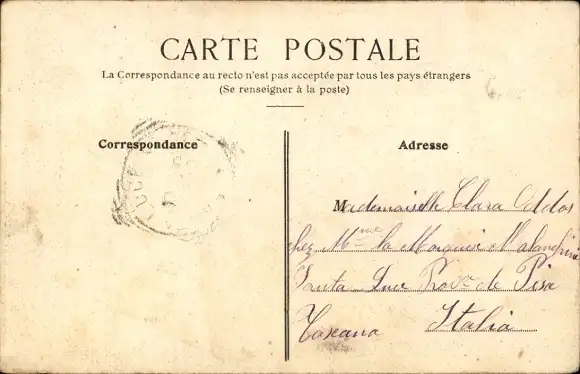 CARTE POSTALE
La Correspondance au recto n'est pas acceptée par tous les pays étrangers
(Se renseigner à la poste)
Correspondance
Adresse
Mademoiselle Clara Oddos
chez Mme la
Santa Luce Provce de Pisa
Toscana Italia